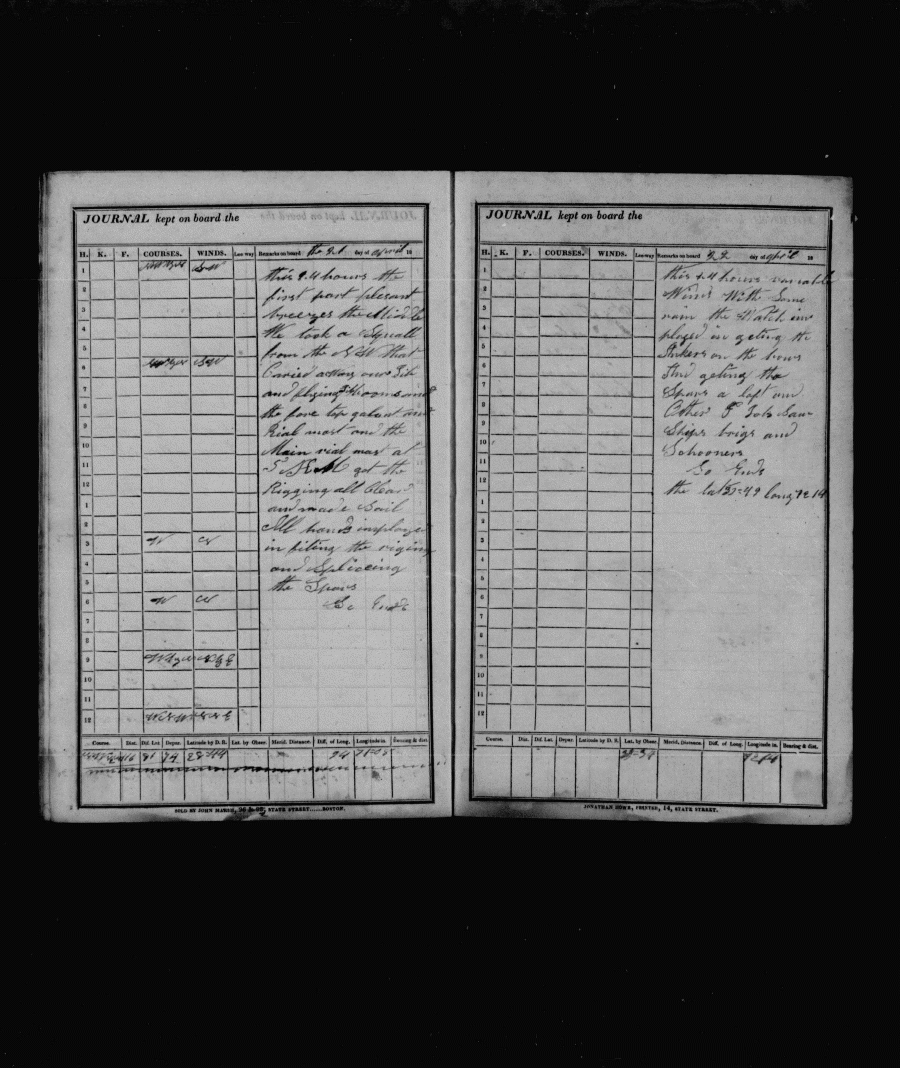 JOURNAL kept on board the
H. K. F. COURSES. WINDS. Lee way Remarks on board the 21 day of april 18
this 24 hours the
first part plesant
breezes the Middle
We took a Squall
from the NW that
Caried away our Jib
and flying Booms and
the fore top galent and
Rial mast and the
Main rial mast at
5 AM got the
Rigging all Clear
and made Sail
All hands imployed
in fiting the riging
and Spliceing
the Spars
So Ends
1
2
3
4
5
6
7
8
9
10
11
12
1
2
3 W
4
5
6 W
7
8
9
10
11
12
Course. Dist. Dif. Lat. Depar. Latitude by D. R. Lat. by Obser. Merid. Distance. Diff. of Long. Longitude in. Bearing & dist.
116 81 74 94
SOLD BY JOHN MARSH, STATE STREET......BOSTON.
JOURNAL kept on board the
H. K. F. COURSES. WINDS. Lee way Remarks on board 22 day of april 18
this 24 hours variable
Winds With Some
rain the Watch im
ployed in geting the
on the bows
And geting the
Spars a loft and
Other Jobs Saw
Ships brigs and
Schooners
So Ends
the lat long 72 14
1
2
3
4
5
6
7
8
9
10
11
12
1
2
3
4
5
6
7
8
9
10
11
12
Course. Dis. Dif. Lat. Depar. Latitude by D. R. Lat. by Obser. Merid. Distance. Diff. of Long. Longitude in. Bearing & dist.
72 14
JONATHAN HOWE, PRINTER, 14, STATE STREET.